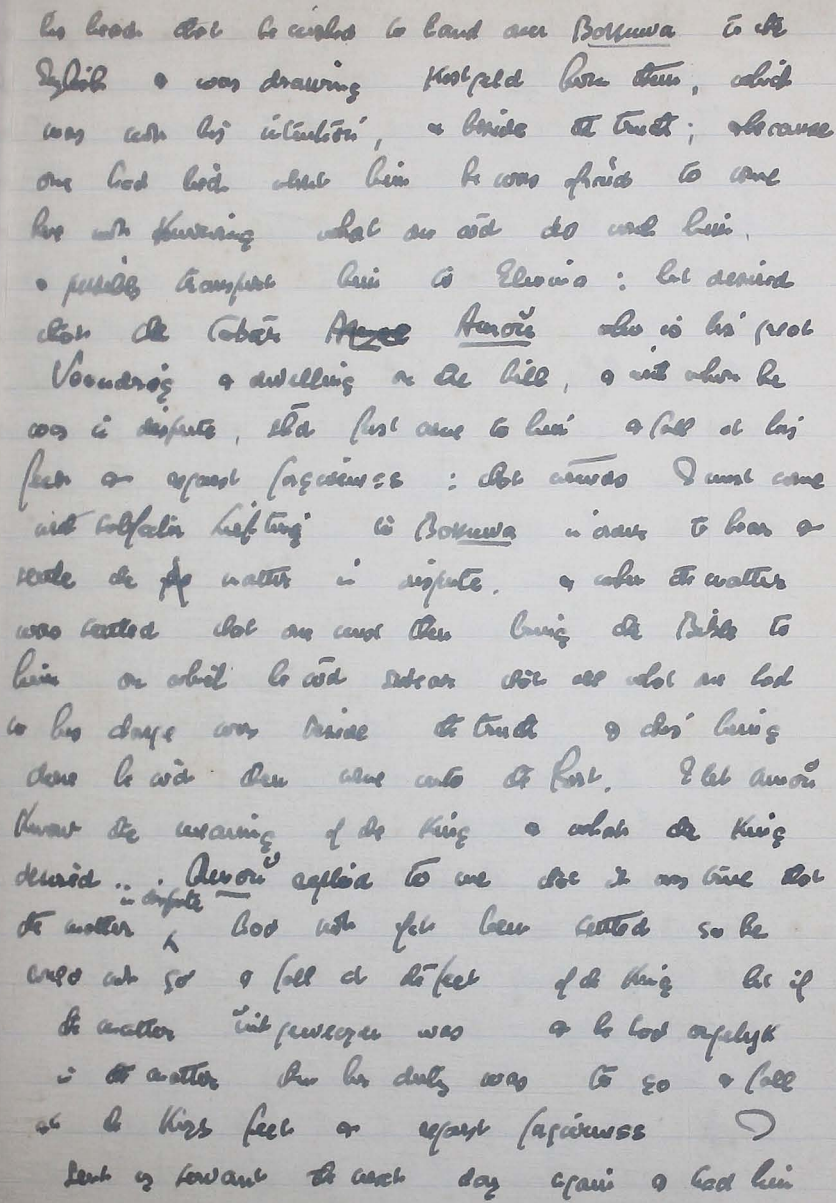 his head that he wished to hand over Bossuwa to the
English & was drawing Kostgeld from them, which
was not his intention, & beside the truth; & because
one had lied about him he was afraid to come
here not knowing what one wd do with him,
& possibly transport him to Elmina: but desired
that the Amoü who is his great
& dwelling on the hill, & with whom he
was in dispute, shd first come to him & fall at his
feet & request forgiveness: that I must come
with in Bossuwa in order to hear &
settle the matter in dispute. & when the matter
was settled that one must then bring the Bible to
him on which he wd swear that all what one had
to his charge was beside the truth & this being
done he wd then come unto the Fort. I let Amoü
know the meaning of the King & what the King
desired ... Amoü replied to me that it was true that
in dispute
the matter had not yet been settled so he
could not go & fall at the feet of the King but if
the matter uitgewezen was & he had ongelijk
in the matter then his duty was to go & fall
at the Kings feet & request forgiveness I
sent servant the next day again & had him